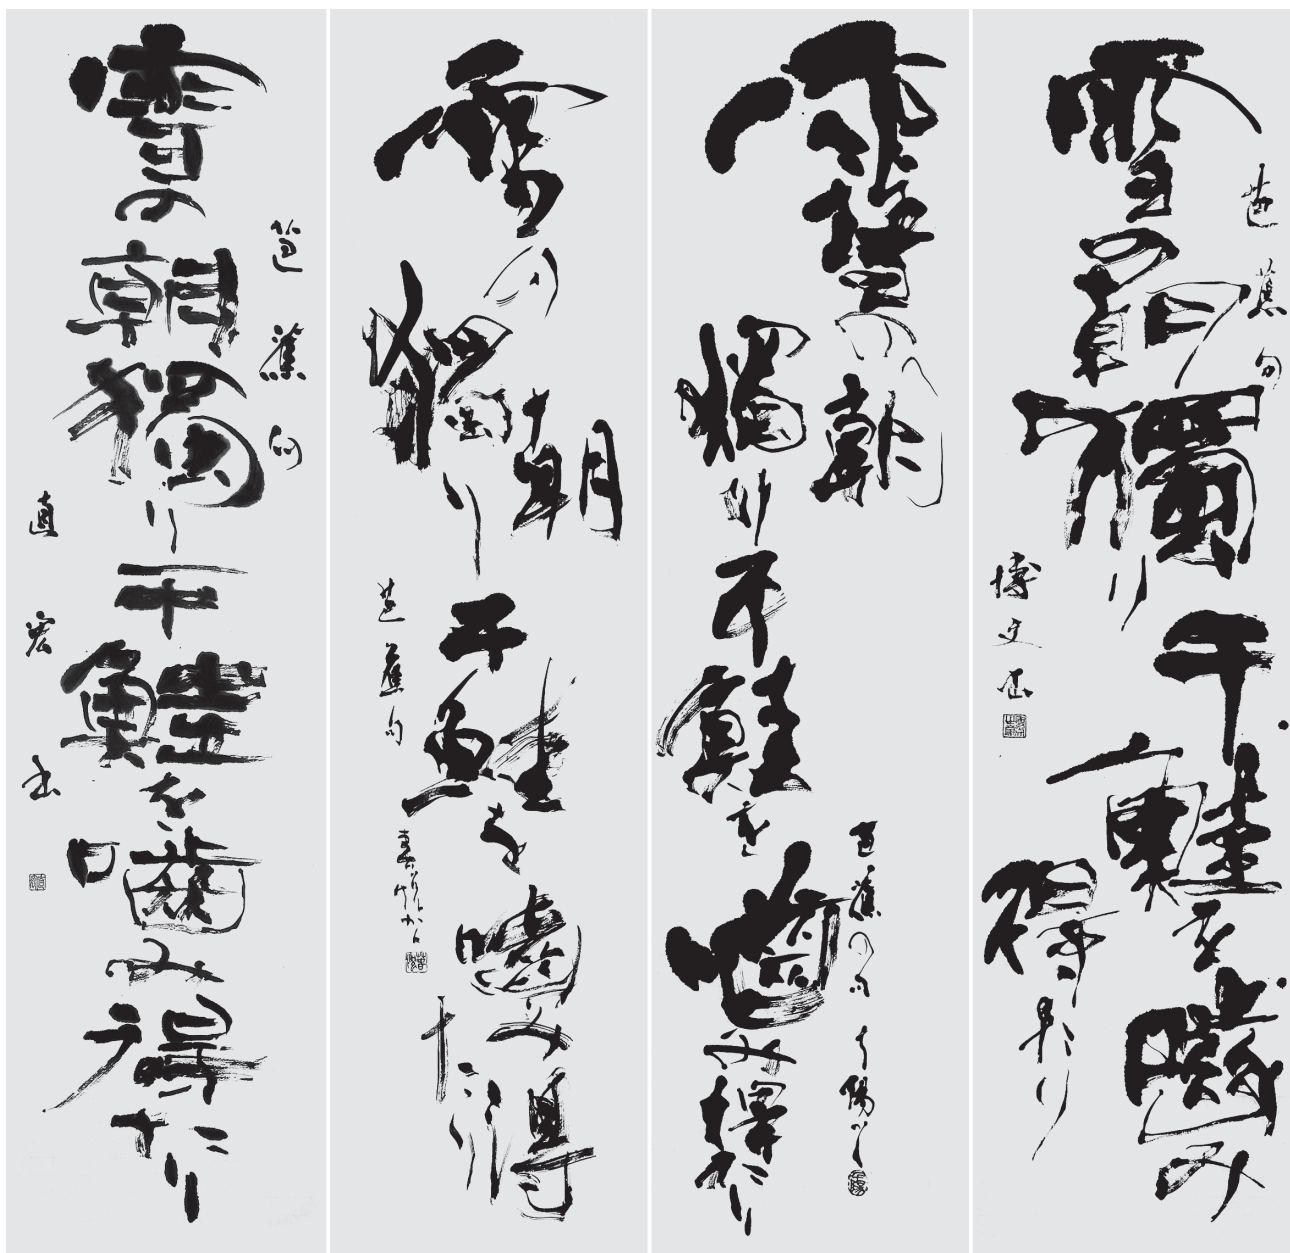 芭蕉句
雪の朝獨り干鮭を噛み
得たり
博文書
雪の朝
獨り干鮭を噛み得たり
芭蕉の句
雪の朝
獨り干鮭を噛み得
たり
芭蕉句
芭蕉句
雪の朝獨り干鮭を噛み得たり
直宏書